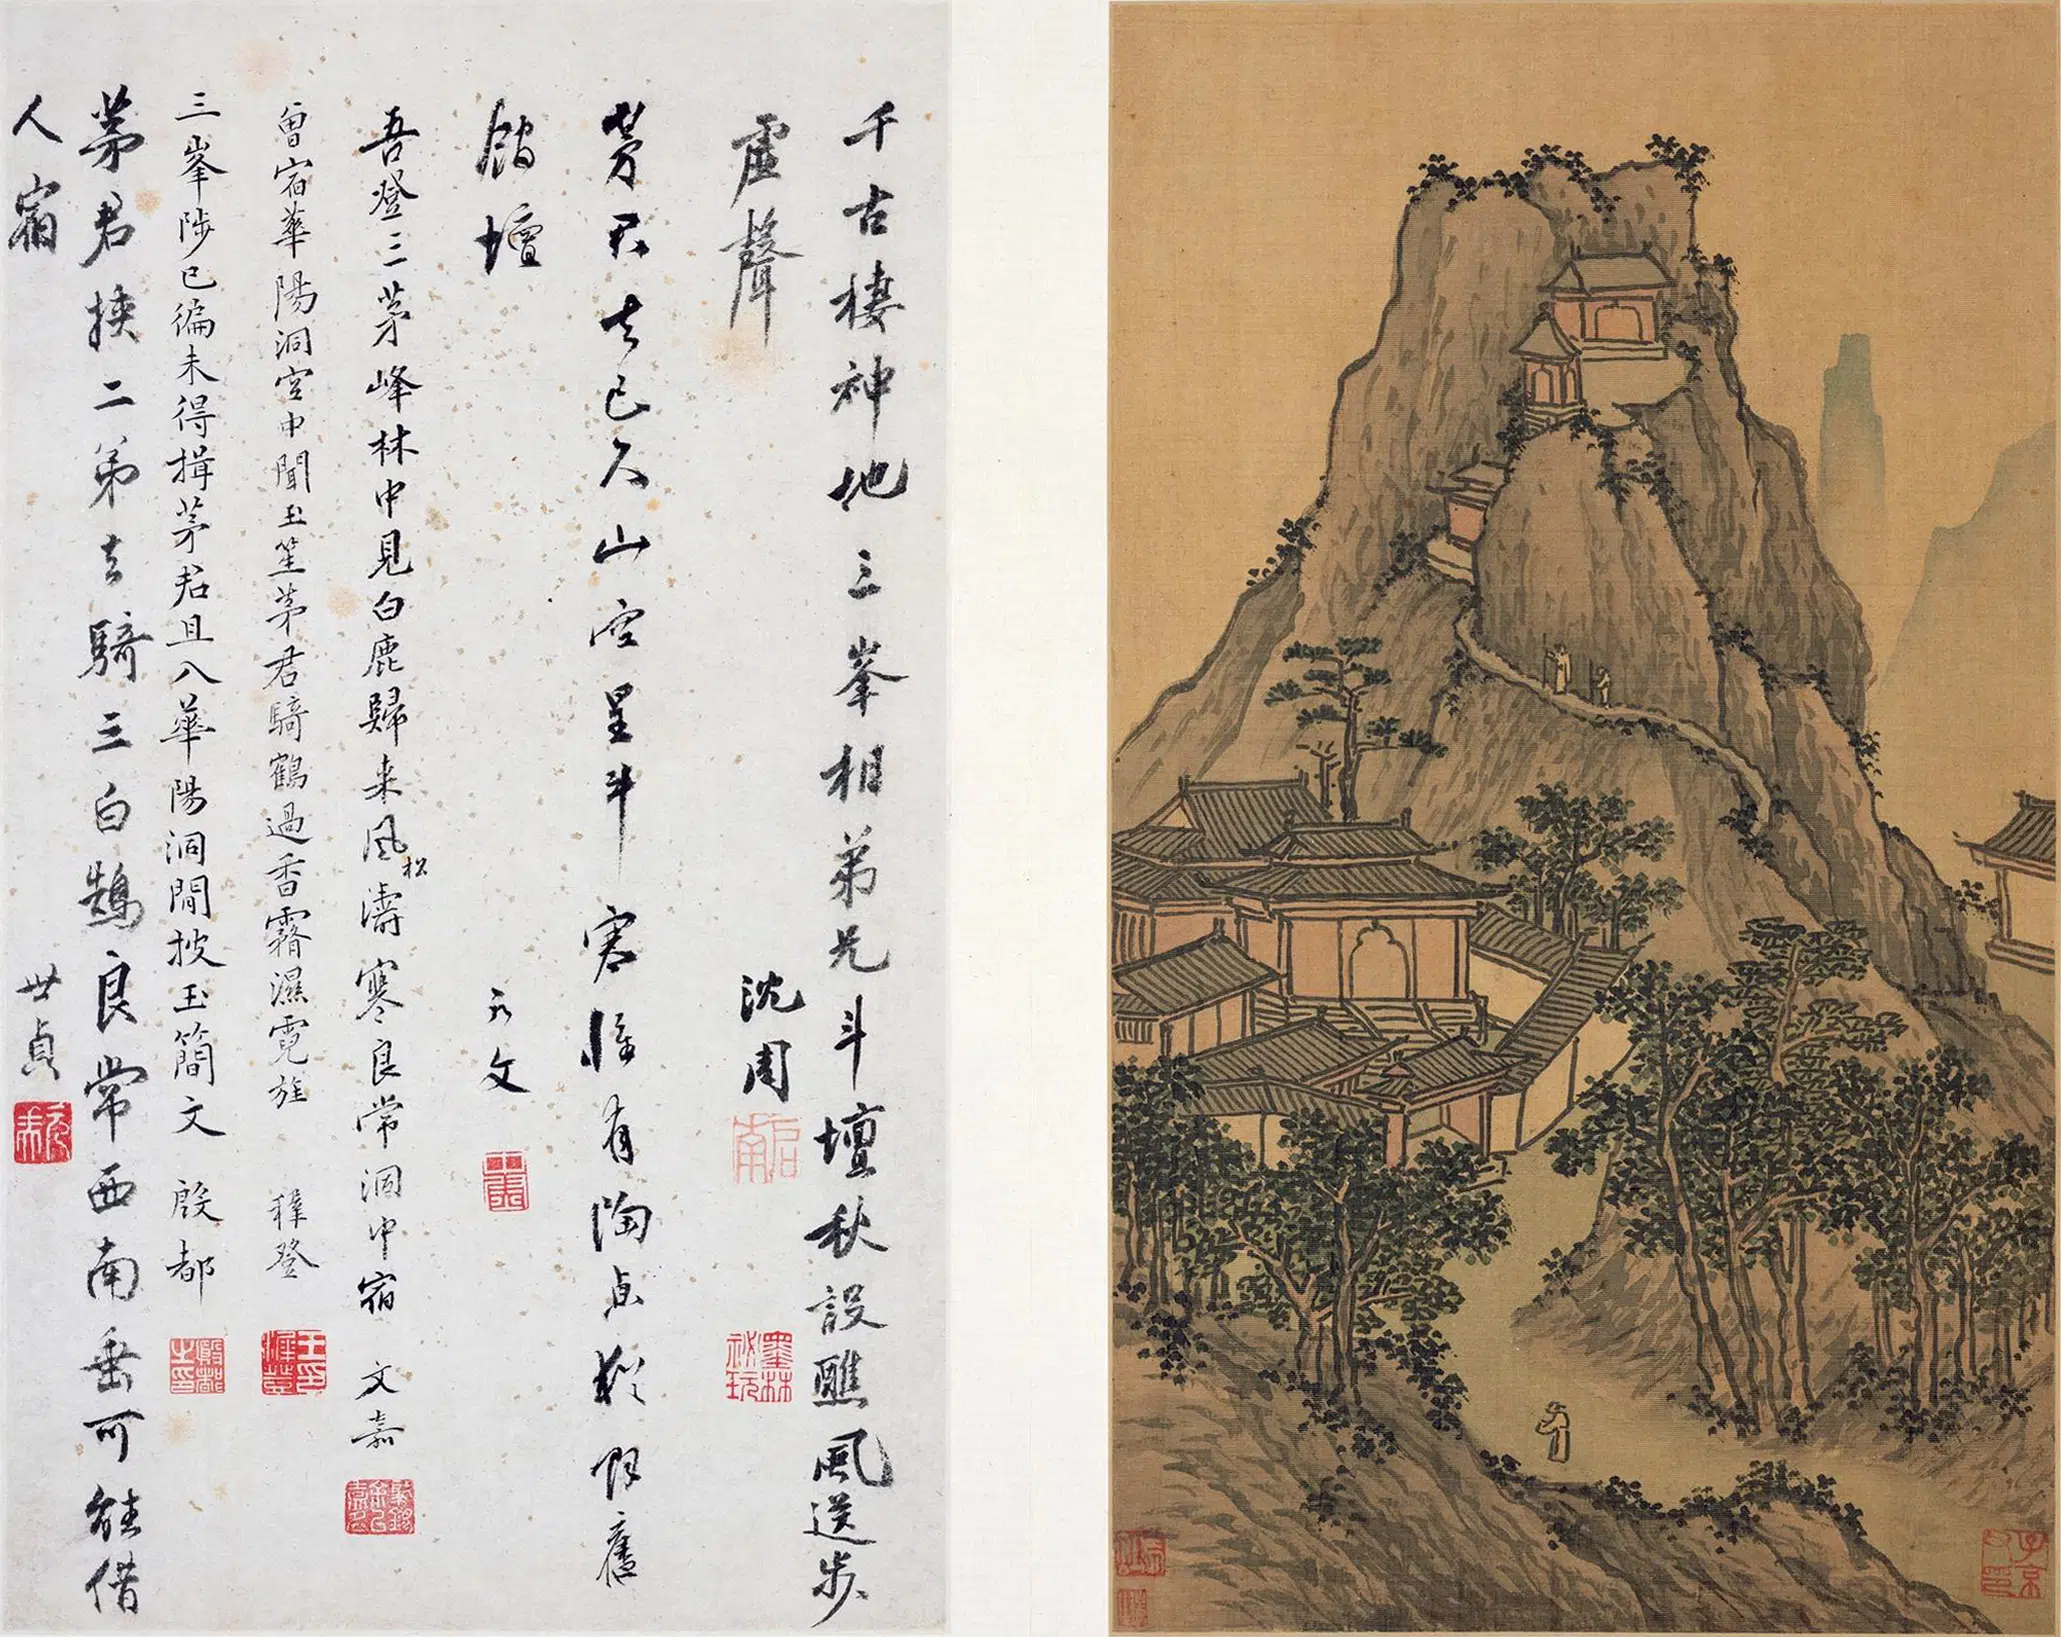 千古棲神地三峯相弟兄斗壇秋設醮風送步
虛聲
沈周
石南
墨林祕玩
茅君去已久山空星斗寒惟有陶貞
舊
館壇
永文
吾登三茅峰林中見白鹿歸来風濤寒良常洞中宿 文嘉
松
曾宿華陽洞宮中聞玉笙茅君騎鶴過香霧濕霓旌 穉登
王穉登印
三峯陟已徧未得揖茅君且入華陽洞閒披玉簡文 殷都
殷都之印
茅君挾二弟去騎三白鵠良常西南垂可能借
人宿
世貞
子京